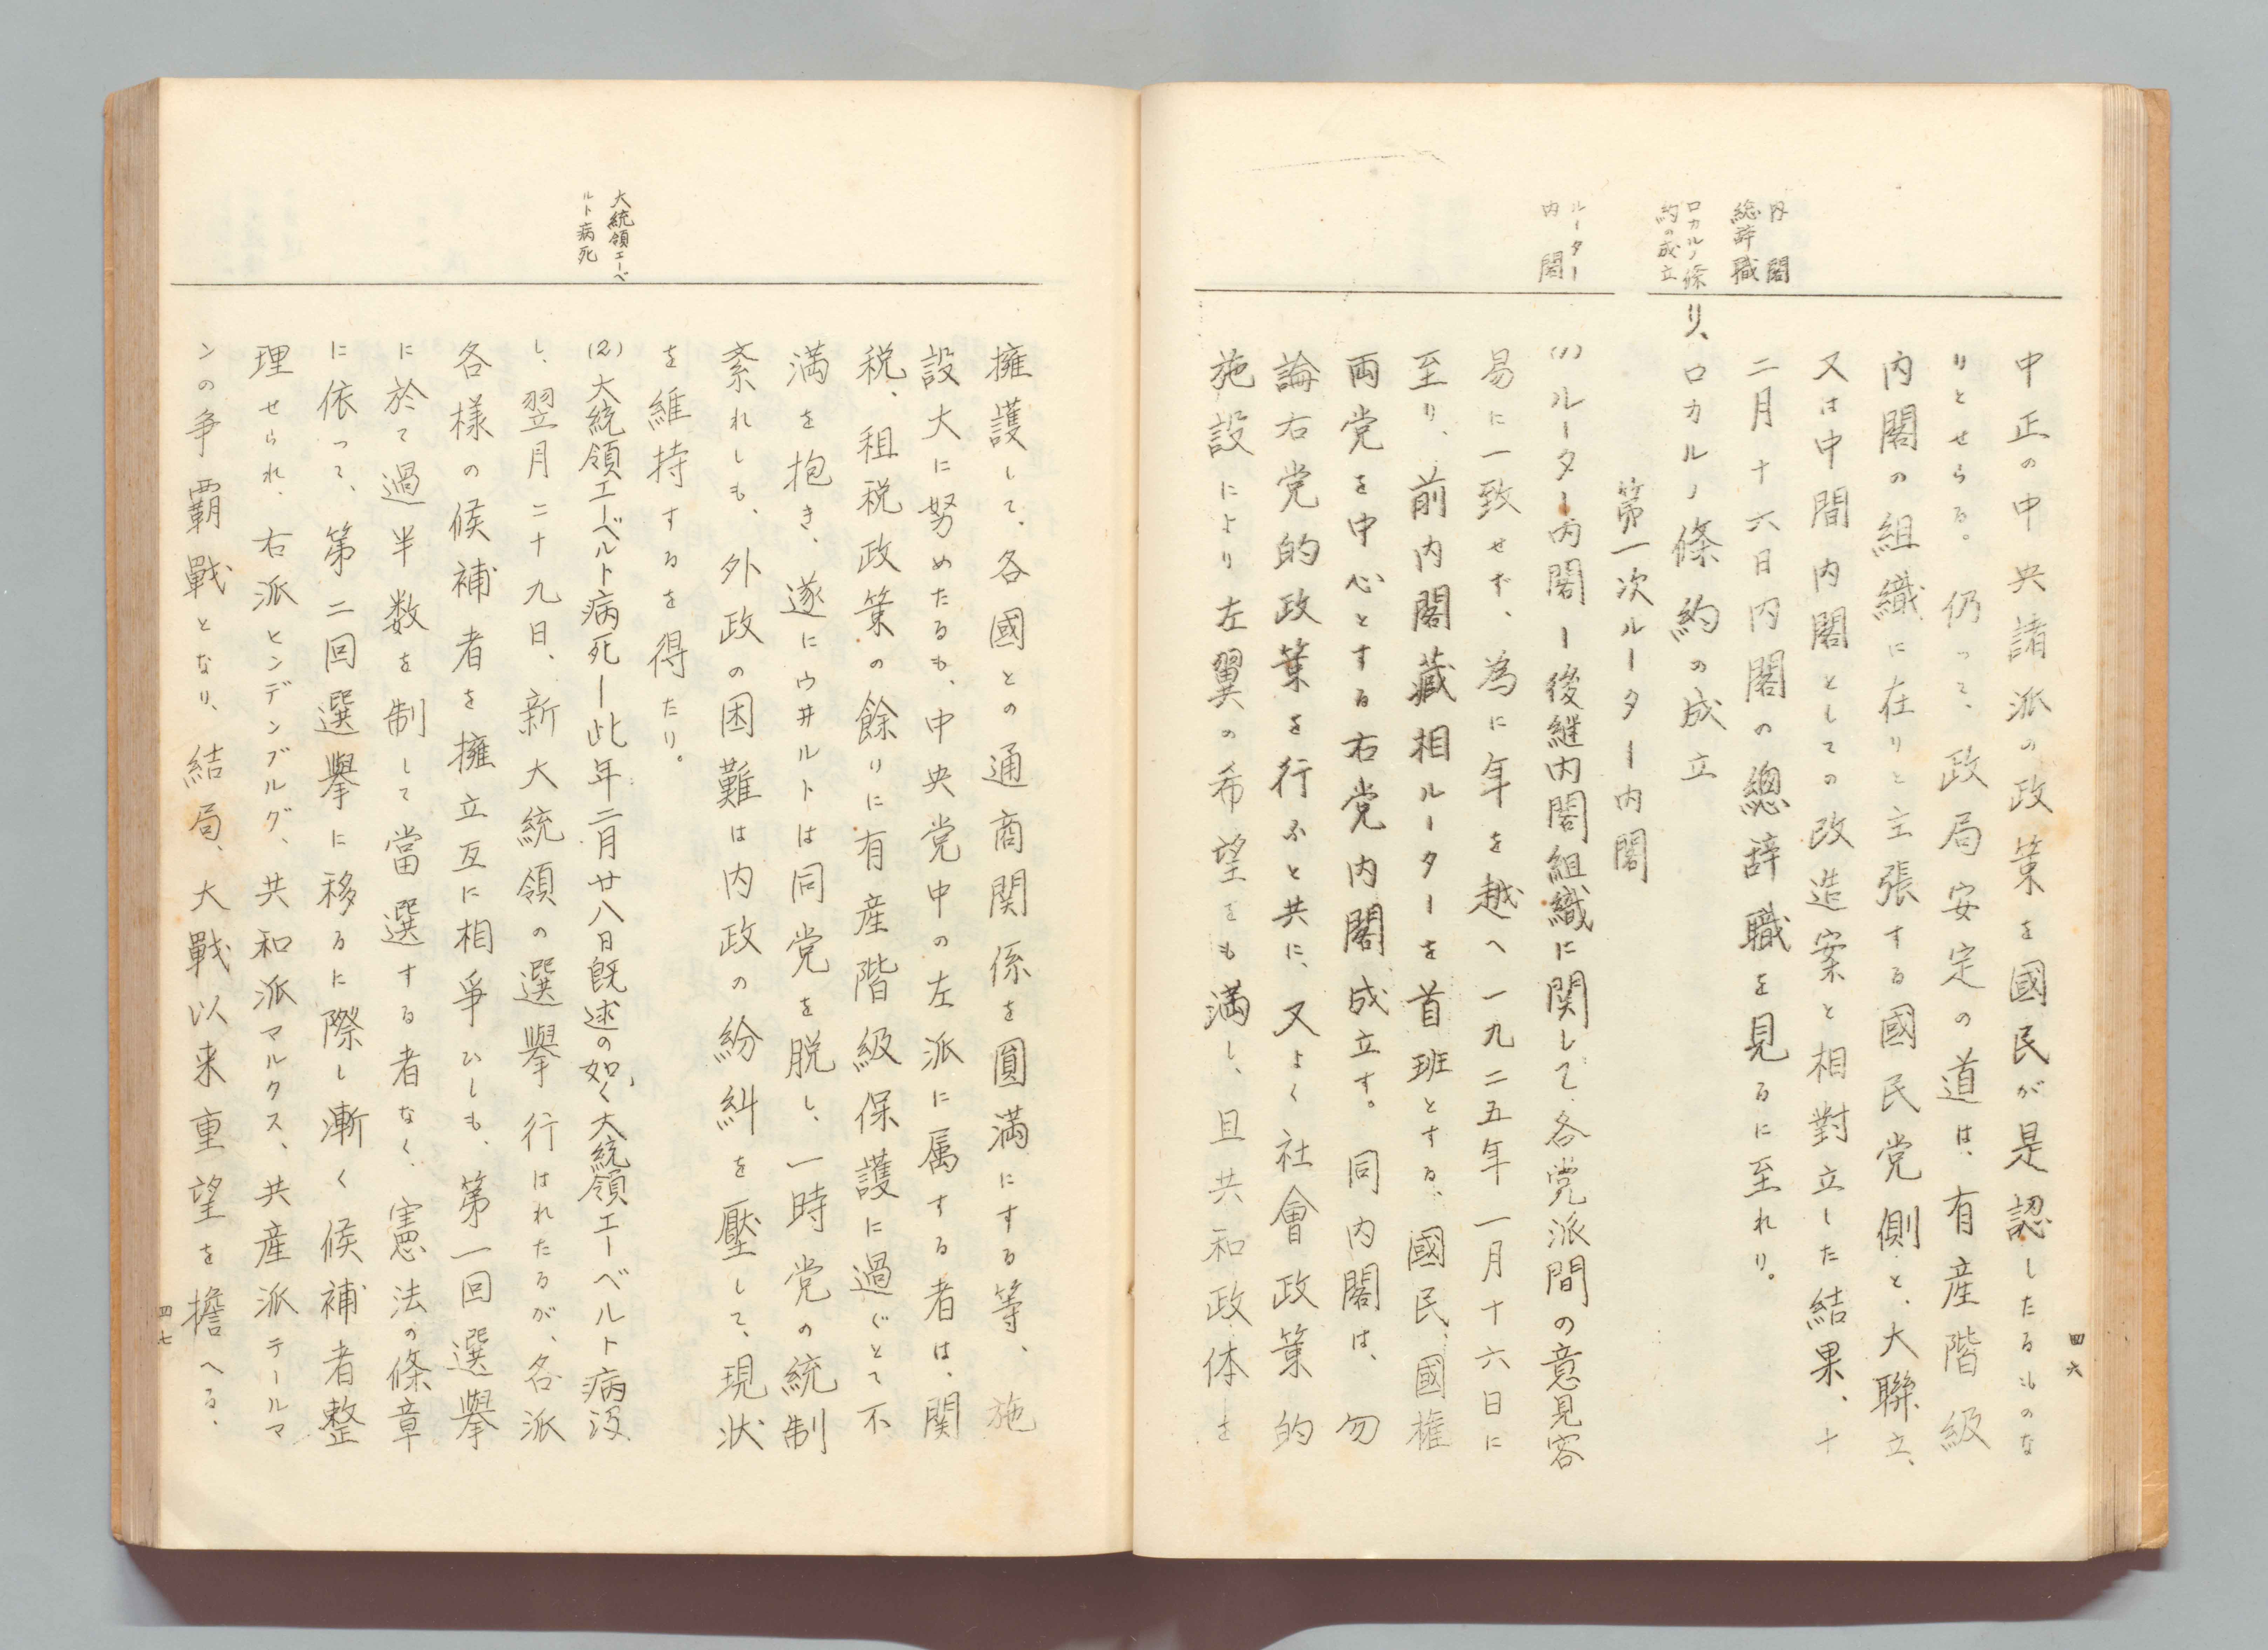 内閣
総辞職
ロカルノ條
約の成立
ルーター
内閣
中正の中央諸派の政策を國民が是認したるものな
りとせらる。仍って、政局安定の道は、有産階級
内閣の組織に在りと主張する國民党側と、大聯立、
又は中間内閣としての改造案と相對立した結果、十
二月十六日内閣の總辞職を見るに至れり。
リ、ロカルノ條約の成立
第一次ルーター内閣
(1)ルーター内閣ー後継内閣組織に関して、各党派間の意見容
易に一致せず、為に年を越へ一九二五年一月十六日に
至り、前内閣藏相ルーターを首班とする、國民、國権
両党を中心とする右党内閣成立す。同内閣は、勿
論右党的政策を行ふと共に、又よく社會政策的
施設により左翼の希望をも満し、且共和政体を
四六
大統領エーベ
ルト病死
擁護して、各國との通商関係を圓満にする等、施
設大に努めたるも、中央党中の左派に属する者は、関
税、租税政策の餘りに有産階級保護に過ぐとて不
満を抱き、遂にウ井ルトは同党を脱し、一時党の統制
紊れしも、外政の困難は内政の紛糾を壓して、現状
を維持するを得たり。
(2)大統領エーベルト病死ー此年二月廿八日既述の如く、大統領エーベルト病没
し、翌月二十九日、新大統領の選擧行はれたるが、各派
各様の候補者を擁立互に相爭ひしも、第一回選擧
に於て過半数を制して當選する者なく、憲法の條章
に依って、第二回選擧に移るに際し漸く候補者整
理せられ、右派ヒンデンブルグ、共和派マルクス、共産派テールマ
ンの争覇戰となり、結局、大戰以来重望を擔へる、
四七